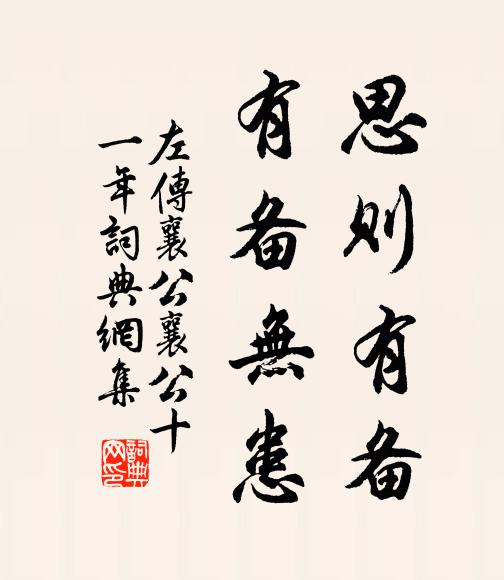 思则有备
有备無患
左傳襄公襄公十
一年詞典網集
詞典網印